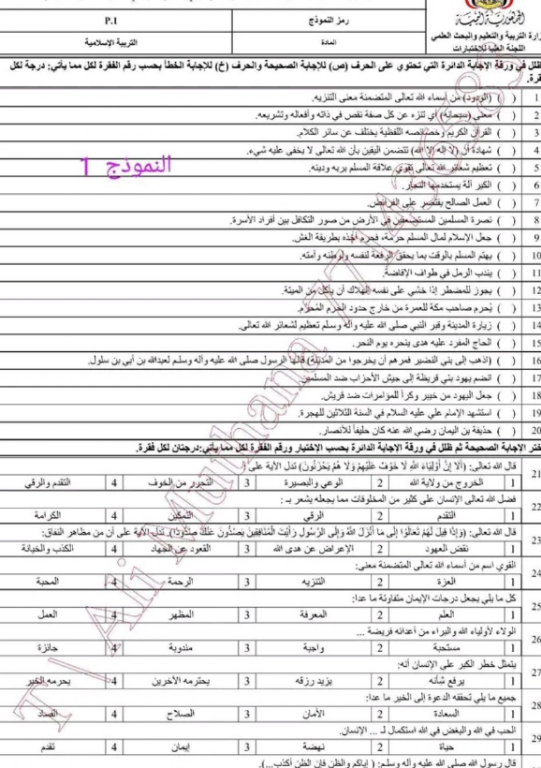 الجمهورية اليمنية
رمز النموذج
P.1
وزارة التربية والتعليم والبحث العلمي
اللجنة العليا للاختبارات
المادة
التربية الإسلامية
ظلل في ورقة الإجابة الدائرة التي تحتوي على الحرف (ص) للإجابة الصحيحة والحرف (خ) للإجابة الخطأ بحسب رقم الفقرة لكل مما يأتي: درجة لكل
فقرة.
1 ( ) (الودود) من أسماء الله تعالى المتضمنة معنى التنزيه.
2 ( ) معنى (سبحانه) أي تنزه عن كل صفة نقص في ذاته وأفعاله وتشريعه.
3 ( ) القرآن الكريم وخصائصه اللفظية يختلف عن سائر الكلام.
4 ( ) شهادة أن (لا إله إلا الله) تتضمن اليقين بأن الله تعالى لا يخفى عليه شيء.
5 ( ) تعظيم شعائر الله تعالى تقوي علاقة المسلم بربه ودينه.
النموذج 1
6 ( ) الكير آلة يستخدمها النجار.
7 ( ) العمل الصالح يقتصر على الفرائض.
8 ( ) نصرة المسلمين المستضعفين في الأرض من صور التكافل بين أفراد الأسرة.
9 ( ) جعل الإسلام لمال المسلم حرمة، فحرم أخذه بطريقة الغش.
10 ( ) يهتم المسلم بالوقت بما يحقق الرفعة لنفسه ولوطنه وأمته.
11 ( ) يندب الرمل في طواف الإفاضة.
12 ( ) يجوز للمضطر إذا خشي على نفسه الهلاك أن يأكل من الميتة.
13 ( ) يُحرم صاحب مكة للعمرة من خارج حدود الحرم المحرم.
14 ( ) زيارة المدينة وقبر النبي صلى الله عليه وآله وسلم تعظيم لشعائر الله تعالى.
15 ( ) الحاج المفرد عليه هدى ينحره يوم النحر.
16 ( ) (اذهب إلى بني النضير فمرهم أن يخرجوا من المدينة) قالها الرسول صلى الله عليه وآله وسلم لعبدالله بن أبي بن سلول.
17 ( ) انضم يهود بني قريظة إلى جيش الأحزاب ضد المسلمين.
18 ( ) جعل اليهود من خيبر وكراً للمؤامرات ضد قريش.
19 ( ) استشهد الإمام علي عليه السلام في السنة الثلاثين للهجرة.
20 ( ) حذيفة بن اليمان رضي الله عنه كان حليفاً للأنصار.
اختر الإجابة الصحيحة ثم ظلل في ورقة الإجابة الدائرة بحسب الاختيار ورقم الفقرة لكل مما يأتي: درجتان لكل فقرة.
21 قال الله تعالى: (أَلَا إِنَّ أَوْلِيَاءَ اللَّهِ لَا خَوْفٌ عَلَيْهِمْ وَلَا هُمْ يَحْزَنُونَ) تدل الآية على:
1 الخروج من ولاية الله 2 الوعي والبصيرة 3 التحرر من الخوف 4 التقدم والرقي
22 فضل الله تعالى الإنسان على كثير من المخلوقات مما يجعله يشعر بـ :
1 التقدم 2 الرقي 3 التمكين 4 الكرامة
23 قال الله تعالى: (وَإِذَا قِيلَ لَهُمْ تَعَالَوْا إِلَى مَا أَنْزَلَ اللَّهُ وَإِلَى الرَّسُولِ رَأَيْتَ الْمُنَافِقِينَ يَصُدُّونَ عَنْكَ صُدُودًا)، تدل الآية على أن من مظاهر النفاق:
1 نقض العهود 2 الإعراض عن هدى الله 3 القعود عن الجهاد 4 الكذب والخيانة
24 القوي اسم من أسماء الله تعالى المتضمنة معنى:
1 العزة 2 التنزيه 3 الرحمة 4 المحبة
25 كل ما يلي يجعل درجات الإيمان متفاوتة ما عدا:
1 العلم 2 المعرفة 3 المظهر 4 العمل
26 الولاء لأولياء الله والبراء من أعدائه فريضة ...
1 مستحبة 2 واجبة 3 مندوبة 4 جائزة
27 يتمثل خطر الكبر على الإنسان أنه:
1 يرفع شأنه 2 يزيد رزقه 3 يحترمه الآخرين 4 يحرمه الخير
28 جميع ما يلي تحققه الدعوة إلى الخير ما عدا:
1 السعادة 2 الأمان 3 الصلاح 4 الفساد
29 الحب في الله والبغض في الله استكمال لـ ... الإنسان.
1 حياة 2 نهضة 3 إيمان 4 تقدم
قال رسول الله صلى الله عليه وآله وسلم: ( إياكم والظن فإن الظن أكذب...).